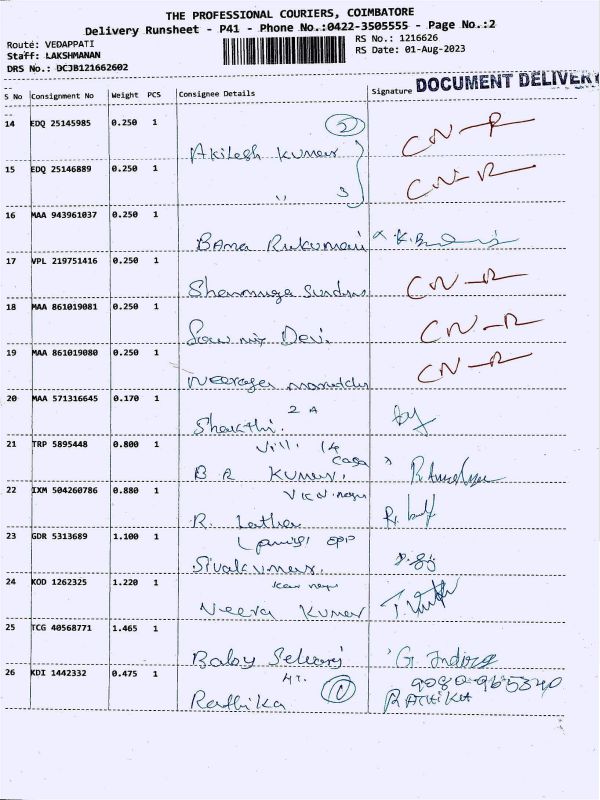 THE PROFESSIONAL COURIERS, COIMBATORE
Delivery Runsheet - P41 - Phone No.:0422-3505555 - Page No.:2
Route: VEDAPPATI
RS No.: 1216626
Staff: LAKSHMANAN
RS Date: 01-Aug-2023
DRS No.: DCJB121662602
DOCUMENT DELIVERY
S No Consignment No Weight PCS Consignee Details Signature
14 EDQ 25145985 0.250 1
2
Akilesh Kumar CN-R
15 EDQ 25146889 0.250 1
" 3 CN-R
16 MAA 943961037 0.250 1
Bama Rukumani
17 VPL 219751416 0.250 1
Shanmuga CN-R
18 MAA 861019081 0.250 1
Devi. CN-R
19 MAA 861019080 0.250 1
CN-R
20 MAA 571316645 0.170 1
2 A
Shakthi.
21 TRP 5895448 0.800 1
Vill. 14
Casa
B R Kumar.
22 IXM 504260786 0.880 1
R. Latha
23 GDR 5313689 1.100 1
opp
Sivakumar.
24 KOD 1262325 1.220 1
Neera Kumar
25 TCG 40568771 1.465 1
Baby G. Indira
26 KDI 1442332 0.475 1
Radhika RATHIKA